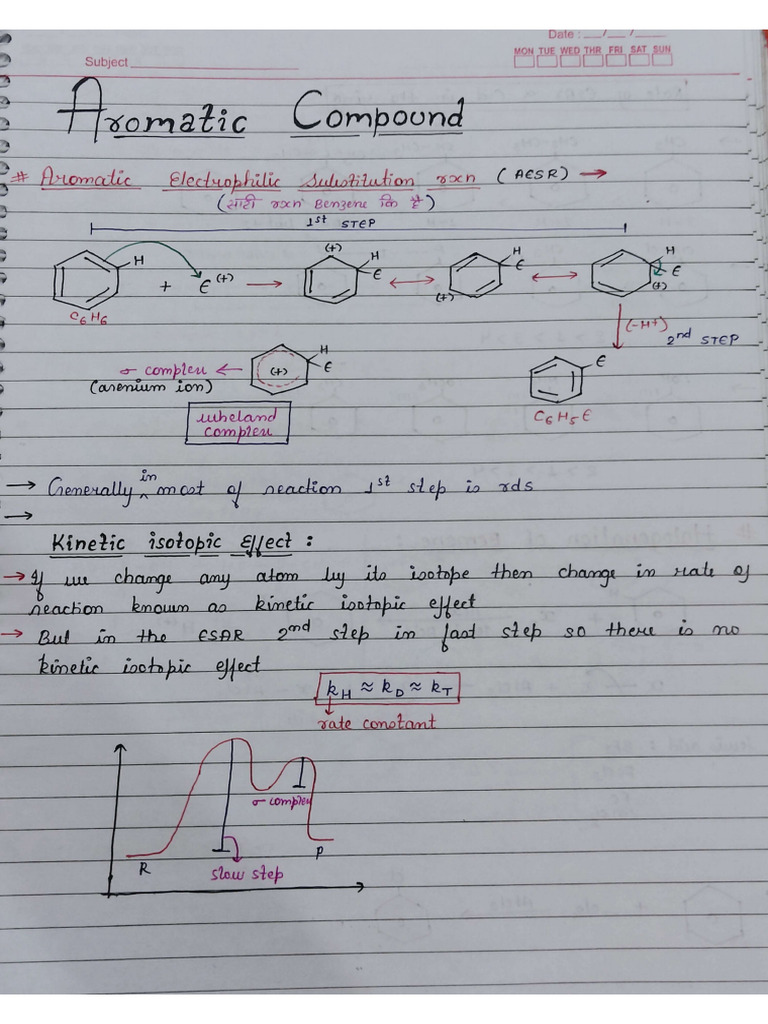 Date : __/__/__
MON TUE WED THR FRI SAT SUN
Subject
Aromatic Compound
# Aromatic Electrophilic Substitution rxn (AESR) →
(सारी rxn Benzene कि है)
1st STEP
H + E (+) → (+) H E ↔ H E (+) ↔ H E (+)
C6H6
(-H+)
2nd STEP
σ complex ← (+) H E
(arenium ion)
E
C6H5E
wheland
complex
→ Generally in most of reaction 1st step is rds
→
Kinetic isotopic Effect :
→ If we change any atom by its isotope then change in rate of
reaction known as kinetic isotopic effect
→ But in the ESAR 2nd step in fast step so there is no
kinetic isotopic effect
kH ≈ kD ≈ kT
rate constant
σ complex
R
P
slow step